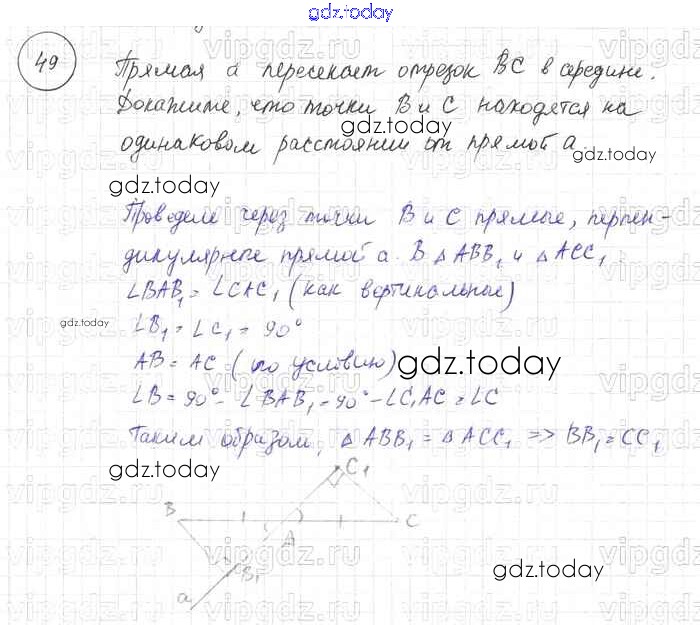 gdz.today
49
Прямая a пересекает отрезок BC в середине.
Докажите, что точки B и C находятся на
gdz.today
одинаковом расстоянии от прямой a.
gdz.today
Проведем через точки B и C прямые, перпен-
дикулярные прямой a. В △ABB₁ и △ACC₁
∠BAB₁ = ∠CAC₁ (как вертикальные)
gdz.today
∠B₁ = ∠C₁ = 90°
AB = AC (по условию)
gdz.today
∠B = 90° - ∠BAB₁ = 90° - ∠C₁AC = ∠C
Таким образом, △ABB₁ = △ACC₁ => BB₁ = CC₁
gdz.today
C₁
B
C
A
B₁
gdz.today
a